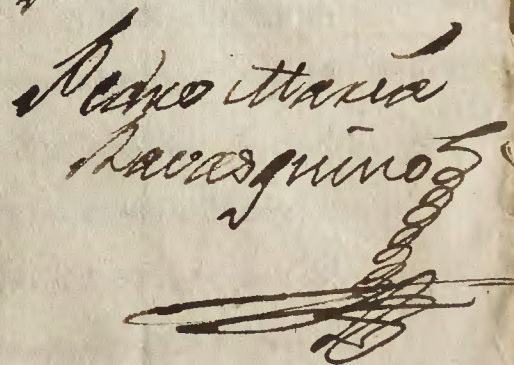 Pedro María
Ravasquino